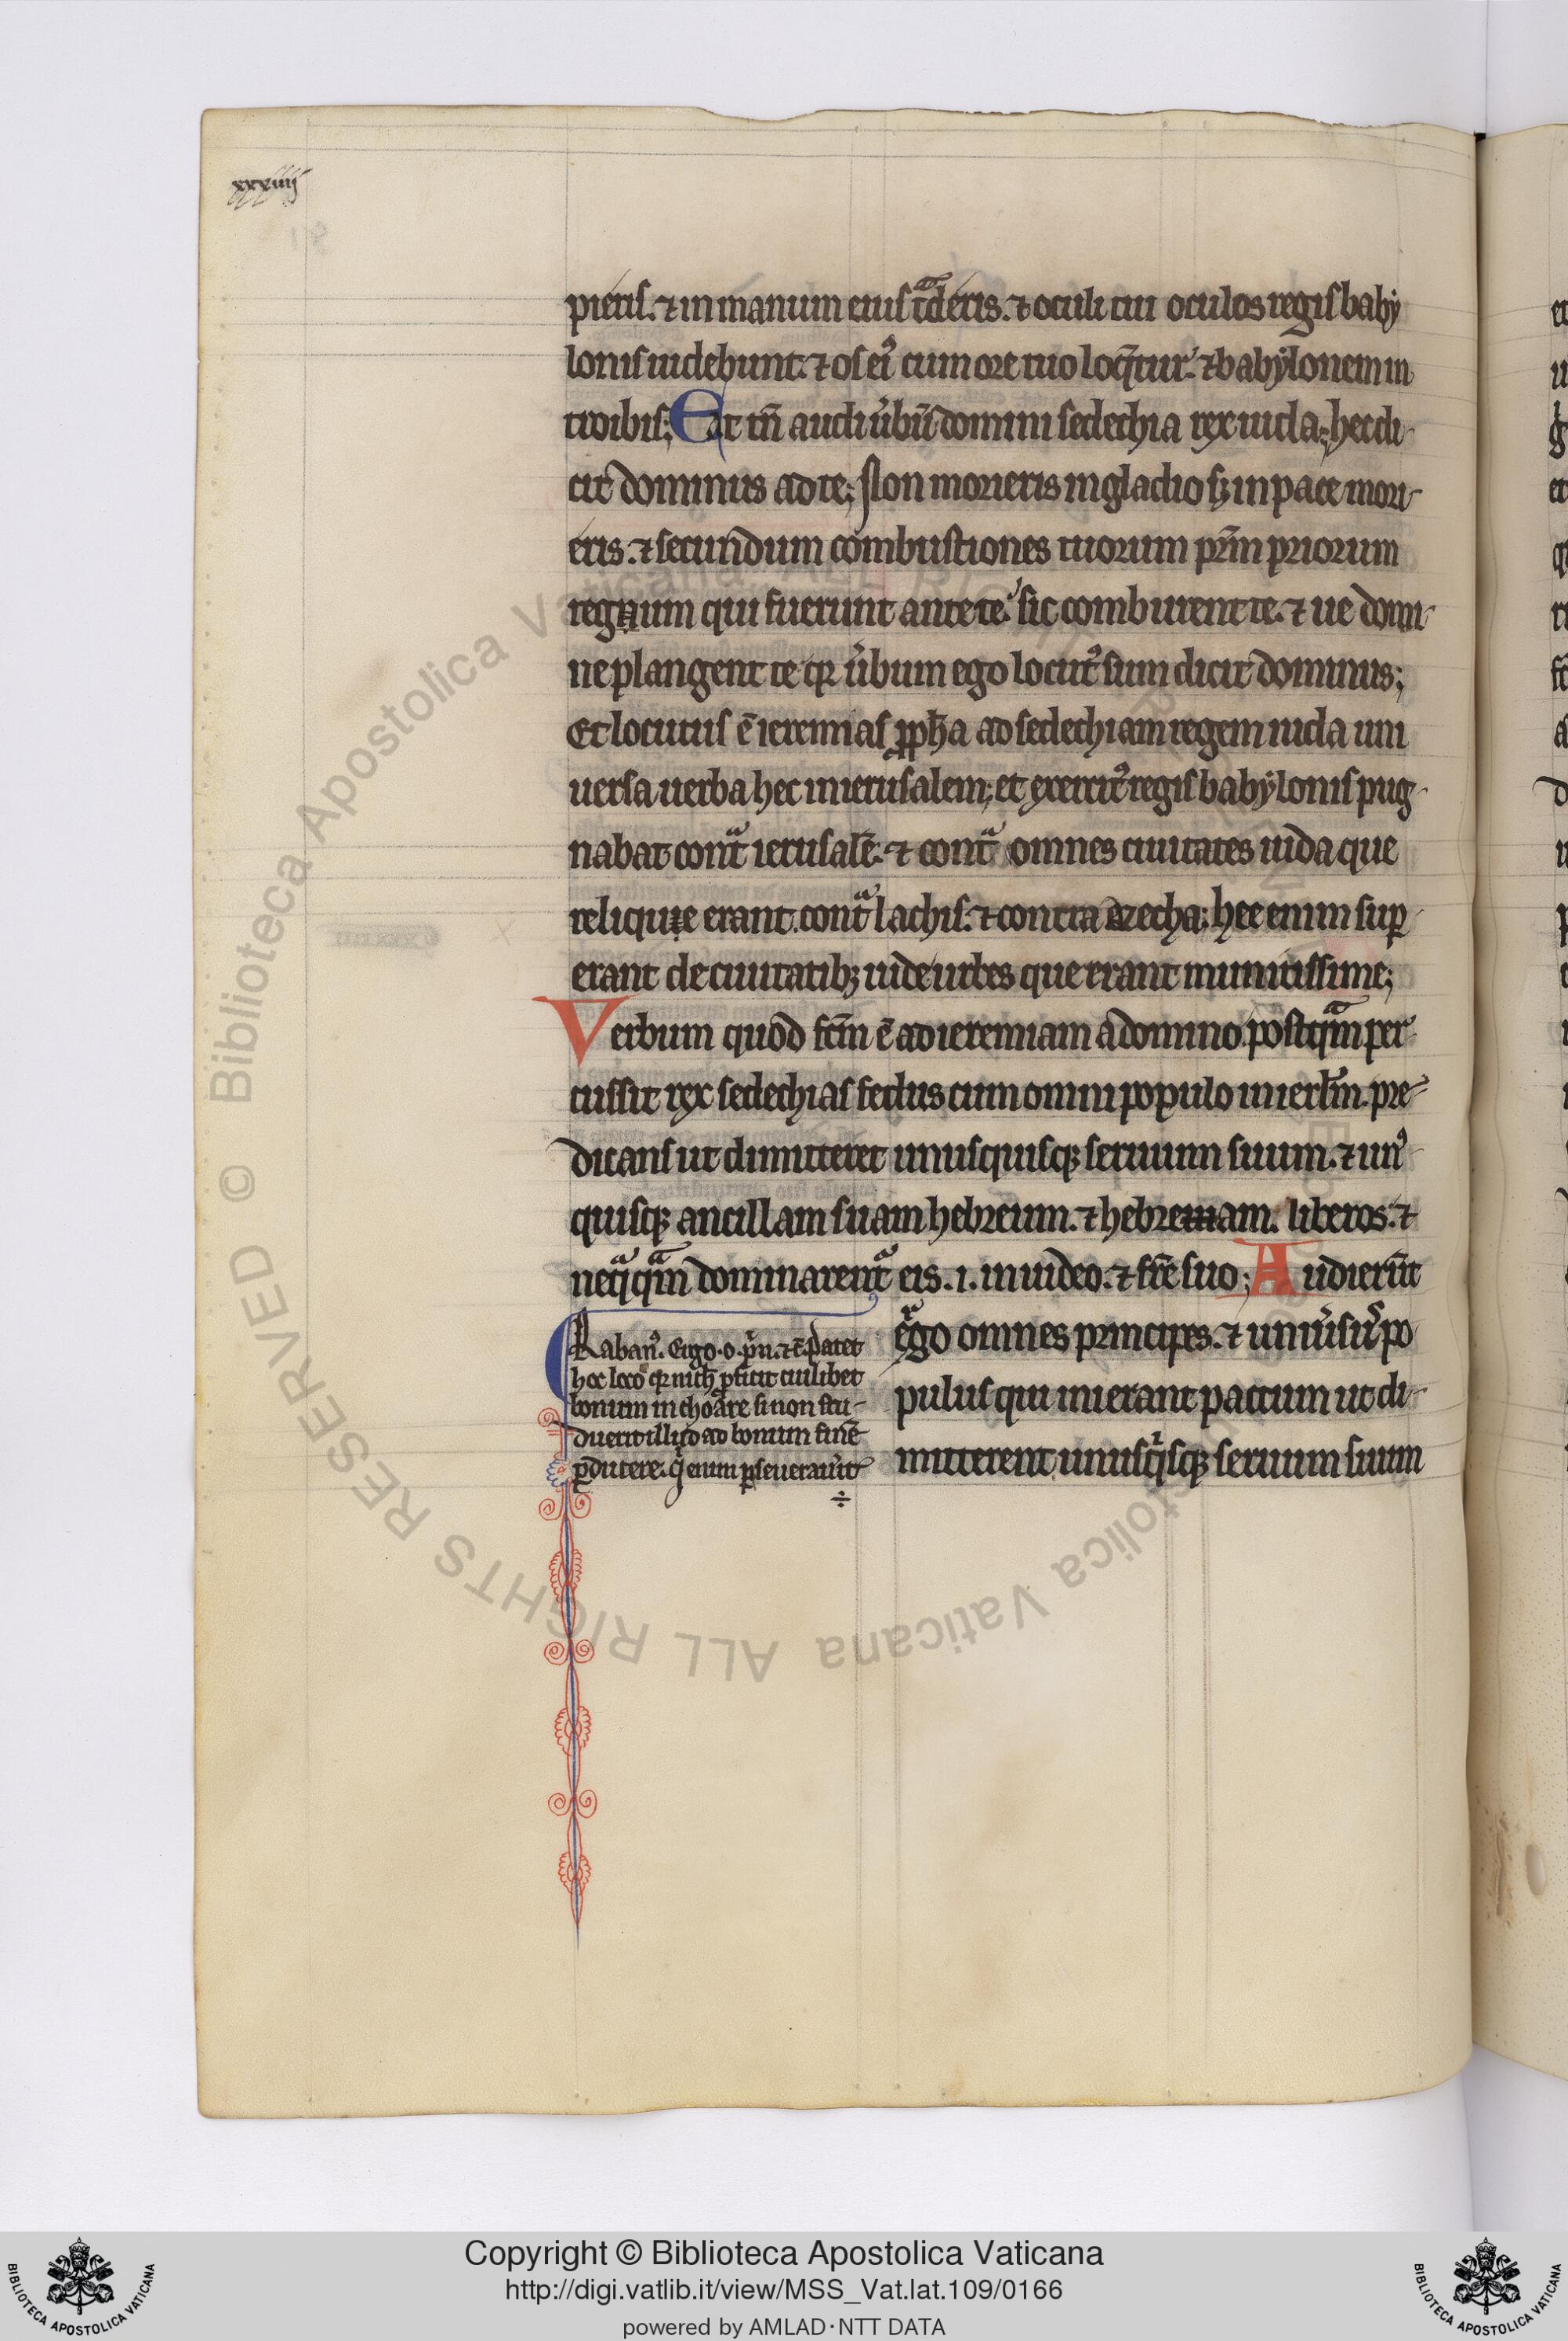 xxxiiij
pieris. ⁊ in manum eius tͣderis. ⁊ oculi tui oculos regis baby
lonis uidebunt. ⁊ os ei᷒ cum ore tuo loq̄tur. ⁊ babylonem in
troibis; At tn̄ audi u̓bū domini sedechia rex iuda; hec di-
cit dominus ad te; Non morieris in gladio sꝫ in pace mori-
eris. ⁊ secundum combustiones tuorum pr̄m priorum
regnum qui fuerunt ante te. sic comburent te. ⁊ ue domi-
ne plangent te qꝛ u̓bum ego locut᷒ sum dicit dominus;
Et locutus ē ieremias ꝓph̄a ad sedechiam regem iuda uni
uersa uerba hec in ierusalem; et exercit᷒ regis babylonis pug-
nabat contͣ ierusalē. ⁊ contͣ omnes ciuitates iuda que
relique erant. contͣ lachis. ⁊ contra azecha; hee enim suꝑ-
erant de ciuitatibꝫ iude urbes que erant munitissime;
Verbum quod fc̄m ē ad ieremiam a domino. postqͣm per-
cussit rex sedechias fedus cum omni populo in ierl̄m. pre-
dicans ut dimitteret unusquisqꝫ seruum suum. ⁊ un᷒-
quisqꝫ ancillam suam hebreum. ⁊ hebream. liberos. ⁊
neqͣqͣm dominarent͛ eis. i. in iudeo. ⁊ fr̄e suo; Audierūt
ḡͦ omnes principes. ⁊ uniu̓sus po
pulus qui inierant pactum ut di-
mitterent unusqͥsqꝫ seruum suum
Raban᷒. Ergo. o. p̓n. ⁊c̄. Patet
hoc loco qꝛ nich̄ ꝓficit cuilibet
bonum inchoare si non stu-
duerit illud ad bonum finē
ꝑducere. qͥ enim ꝑseuerau̓it
÷
Copyright © Biblioteca Apostolica Vaticana
http://digi.vatlib.it/view/MSS_Vat.lat.109/0166
powered by AMLAD·NTT DATA
BIBLIOTECA APOSTOLICA VATICANA
BIBLIOTECA APOSTOLICA VATICANA